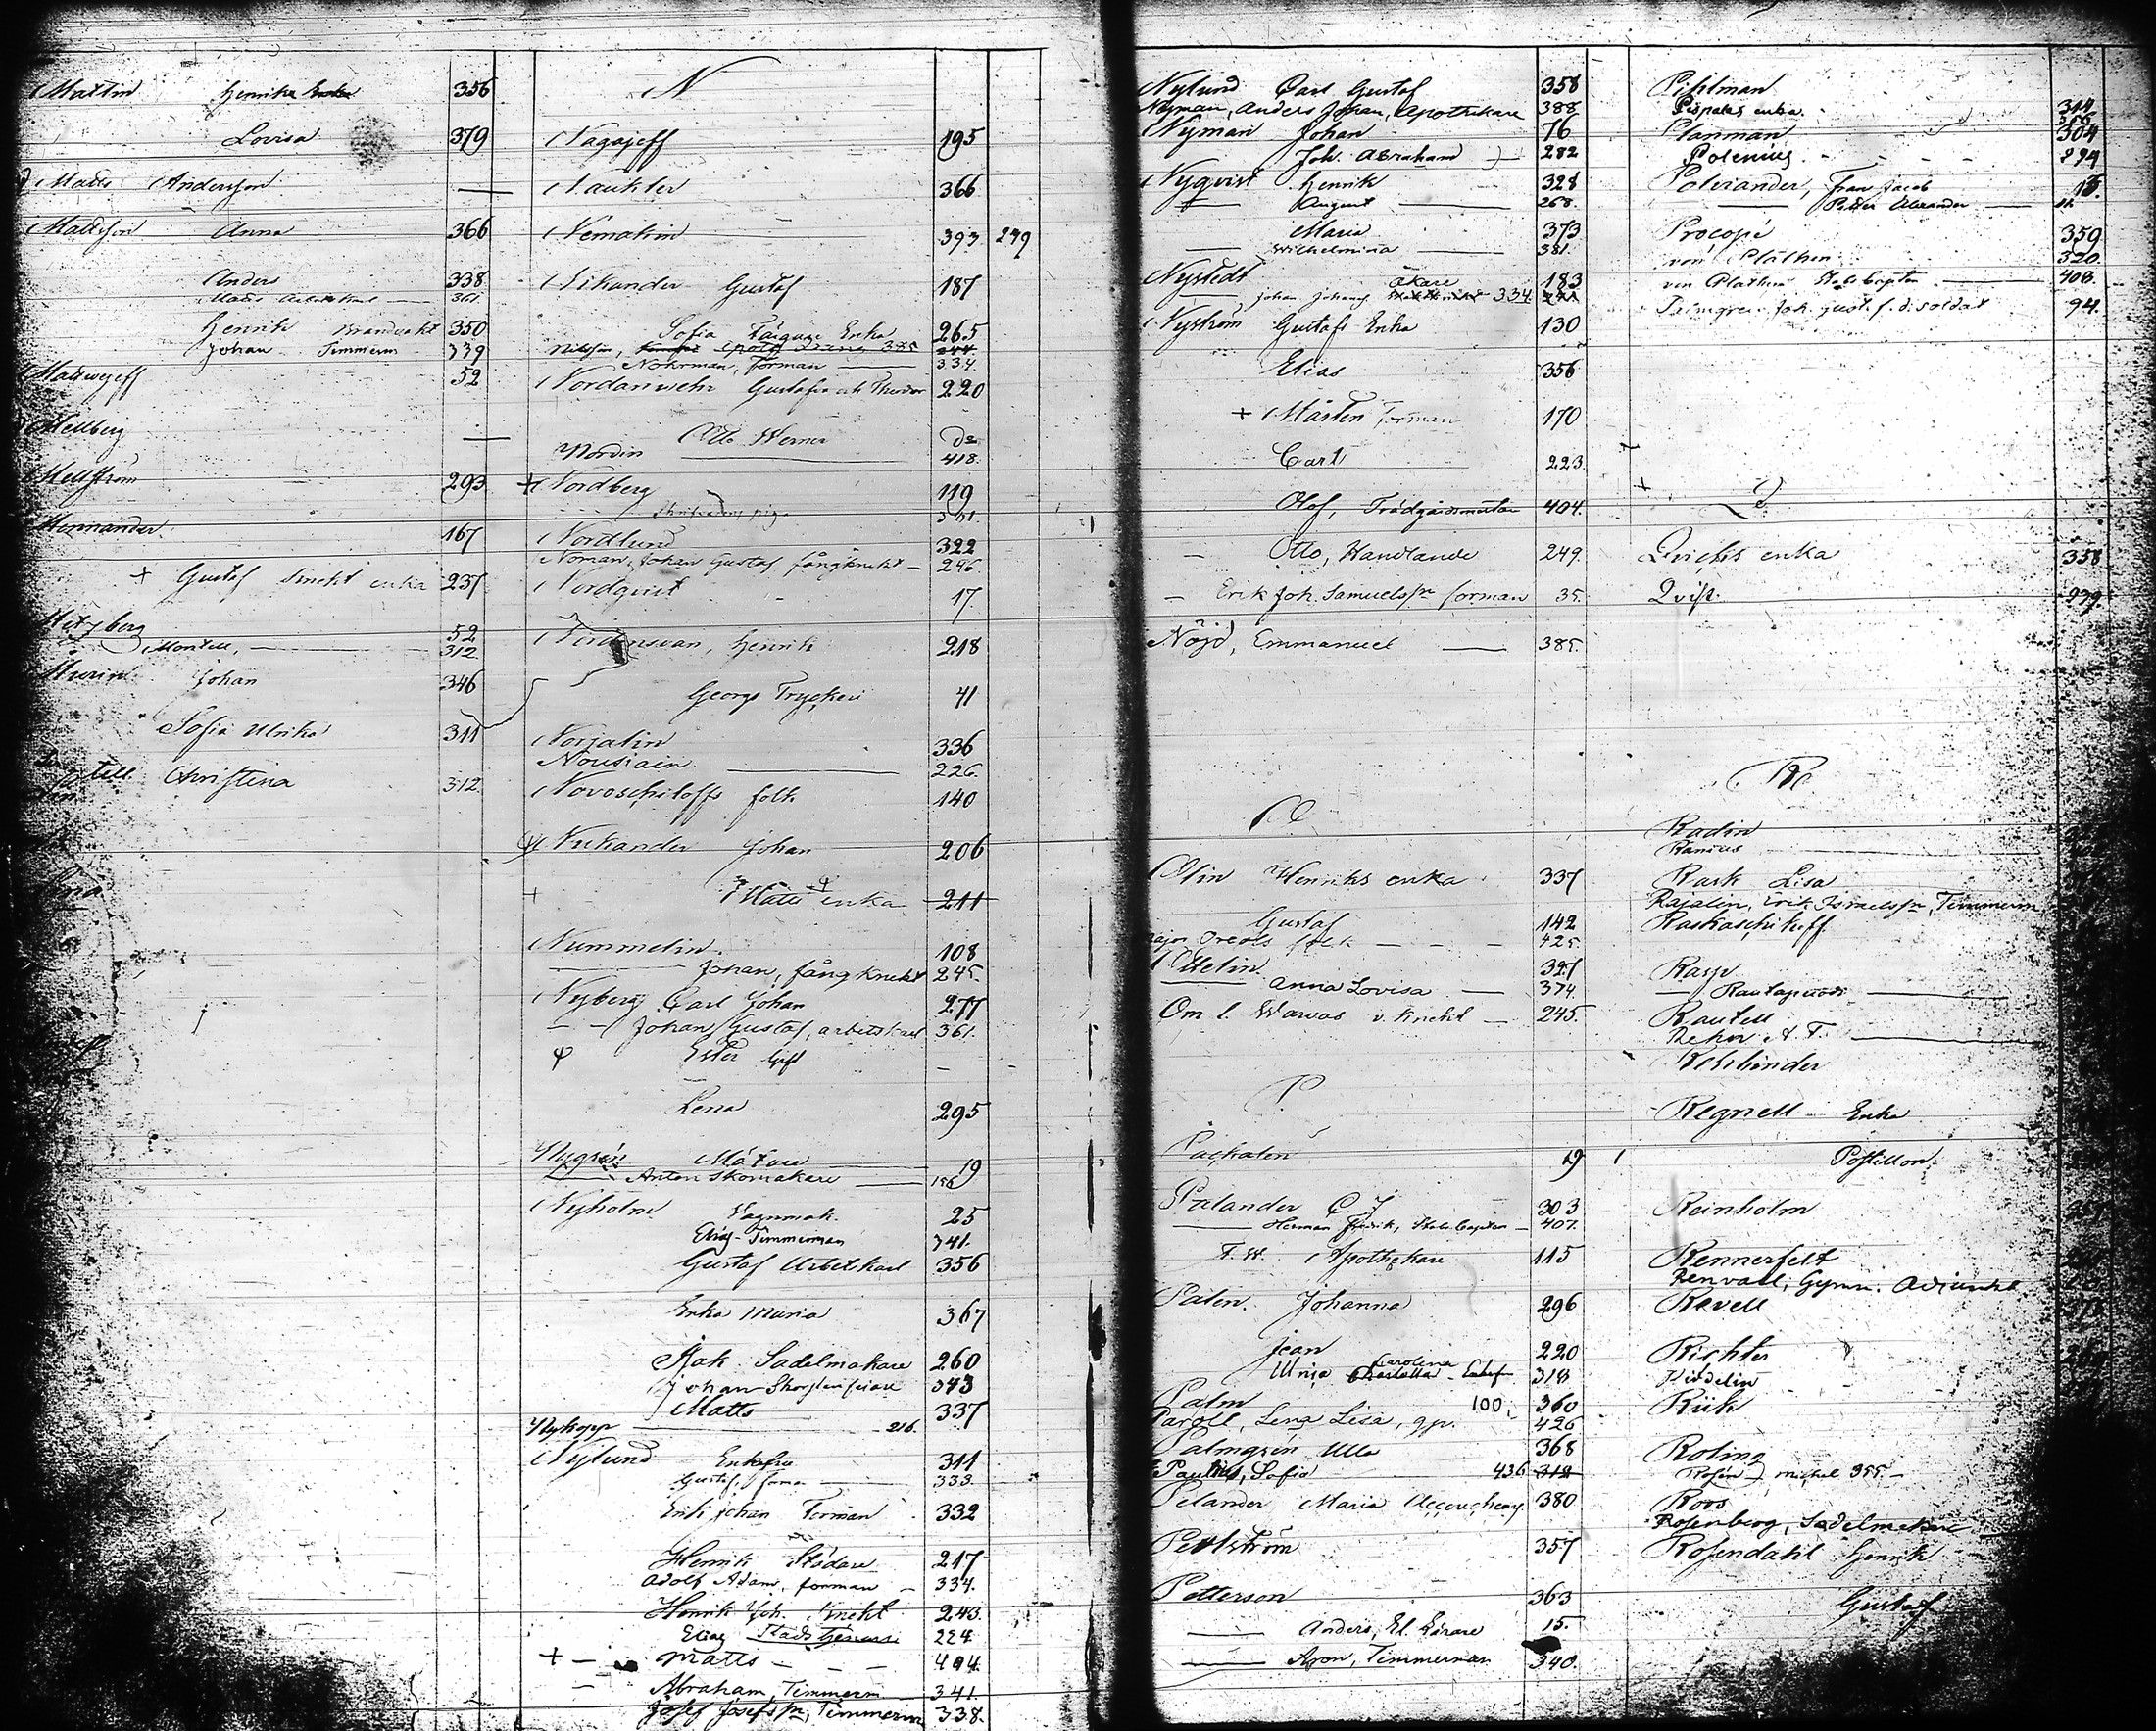 Mattin Henrika 356
Lovisa 379
Matts Andersson —
Mattsson Anna 366
Anders 338
Matts Arbetskarl 361
Henrik Brandvakt 350
Johan Timmerm 339
Matwejeff 52
Mellberg —
Mellström 293
Mennander 167
+ Gustaf knekt enka 237
52
Montell, — 312
Murin Johan 346
Sofia Ulrika 311
Christina 312
N
Nagajeff 195
Naukler 366
Nematin 393 249
Nikander Gustaf 187
Sofia Färgare Enka 265
Nohrman, Forman — 334
Nordanwehr Gustafva och Theodor 220
Otto Werner do
Nordin — 418
+ Nordberg 119
Nordlund 322
Noman, Johan Gustaf fångknekt — 246
Nordqvist 17
Nordensvan, Henrik 218
Georgs Tryckeri 41
Norjalin 336
Nousiain — 226
Novoschiloffs folk 140
Nukander Johan 206
+ Matts enka 211
Nummelin 108
— Johan, fångknekt 245
Nyberg Carl Johan 277
— Johan Gustaf, arbetskarl 361
Ester Gift —
Lena 295
Nygrén Målare 19
— Anton Skomakare — 156
Nyholm Vagnmak. 25
Elias Timmerman 341
Gustaf Arbetskarl 356
Enka Maria 367
Isak Sadelmakare 260
Johan Skorstensfejare 343
Matts 337
Nykopp — 216
Nylund Enkefru 311
Gustaf, forman — 333
Erik Johan Forman 332
Henrik Städare 217
Adolf Adam, forman — 334
Henrik Joh. Knekt 243
Elias 224
+ — Matts — — — 404
— Abraham, Timmerm 341
Josef Josefsson, Timmerm 338
Nylund Carl Gustaf 358
Nyman, Anders Johan, Apothekare 388
Nyman Johan 76
Joh. Abraham — 282
Nyqvist Henrik 328
— August — 268
Maria 373
— Wilhelmina — 381
Nystedt åkare 183
— Johan Johans 334
Nyström Gustafs Enka 130
Elias 356
+ Mårten Forman 170
Carl 223
Olof, Trädgårdsmästar 404
— Otto, Handlande 249
— Erik Joh. Samuelsson forman 35
Nöjd, Emmanuel — 385
O
Olin Henriks enka 337
Gustaf 142
Major Oreols folk — — — 425
Ollelin 327
— Anna Lovisa — 374
Om l. Warvas v. Knekt — 245
P
Pachalen 29
Palander C J 303
— Herman Fredrik, Stabs Capten — 407
F. W. Apothekare 115
Palen Johanna 296
Jean 220
Carolina 318
Palm 100, 360
Paroll, Lena Lisa, gp. 426
Palmgrén Ulla 368
Paulin, Sofia 436 318
Pelander Maria Accoucheuse 380
Pettström 357
Petterson 363
— Anders, El Eldare 15
— Aron, Timmerman 340
Pihlman 314
Pispalas enka
Planman 304
Polenius — — — — 294
Polviander, Frans Jacob 15
— Petter Alexander —
Procopé 359
von Plathen 320
von Plathen Stabs Capten — 408
Palmgren Joh. Gust. f. d. soldat 94
Q
Qvicks enka 358
Qvist 279
R
Radin
Ranius —
Rask Lisa
Rajalin, Erik Israelsson, Timmerm
Raskaschikoff
Rasp
—
Rautell
Rehn A. F. —
Rehbinder
Regnell Enka
Postillon
Reinholm
Rennerfelt
Renvall, Gymn. Adjunkt
Revell
Richter
Riddelin
Riik
Roling
Rosén, Michel 355 —
Roos
Rosenberg, Sadelmakare
Rosendahl Henrik
Gustaf